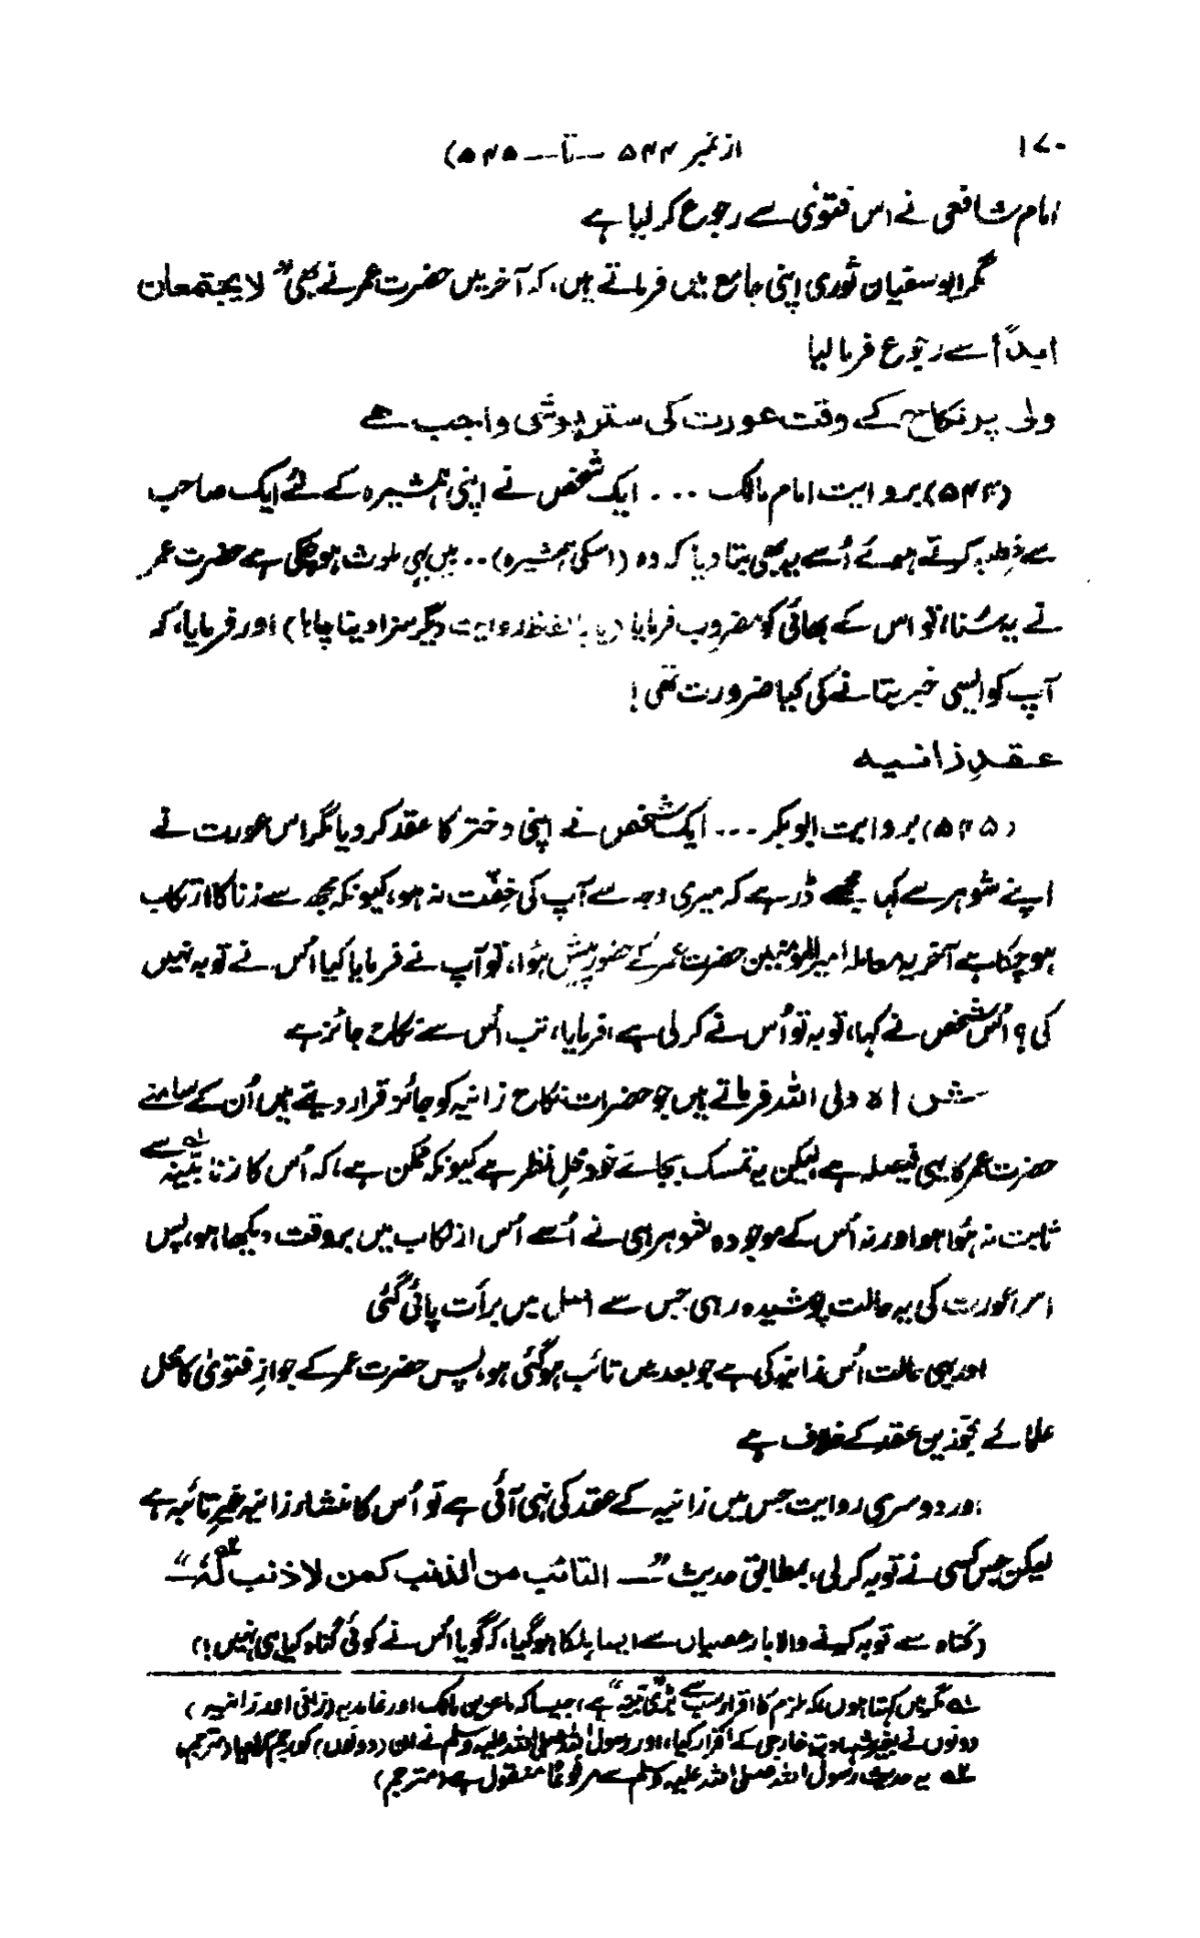 ۱۷۰ از نمبر ۵۴۴ -- تا -- ۵۴۵)
امام شافعی نے اس فتویٰ سے رجوع کر لیا ہے
مگر ابو سفیان ثوری اپنی جامع میں فرماتے ہیں، کہ آخر میں حضرت عمر نے بھی "لا یجتمعان
ابداً" سے رجوع فرما لیا
ولی پر نکاح کے وقت عورت کی ستر پوشی واجب ہے
(۵۴۴) بروایت امام مالک ... ایک شخص نے اپنی ہمشیرہ کے لئے ایک صاحب
سے خطبہ کرتے ہوئے اُسے یہ بھی بتا دیا کہ وہ (اسکی ہمشیرہ) .. میں بھی ملوث ہو چکی ہے حضرت عمر
نے یہ سُنا، تو اس کے بھائی کو مضروب فرمایا (یا بالفظ روایت دیگر سزا دینا چاہا) اور فرمایا، کہ
آپ کو ایسی خبر بتانے کی کیا ضرورت تھی!
عقدِ زانیہ
(۵۴۵) بروایت ابو بکر ... ایک شخص نے اپنی دختر کا عقد کر دیا مگر اس عورت نے
اپنے شوہر سے کہا مجھے ڈر ہے کہ میری وجہ سے آپ کی خِفّت نہ ہو، کیونکہ مجھ سے زنا کا ارتکاب
ہو چکا ہے آخر یہ معاملہ امیر المؤمنین حضرت عمر کے حضور پیش ہُوا، تو آپ نے فرمایا کیا اُس نے توبہ نہیں
کی؟ اُس شخص نے کہا، توبہ تو اُس نے کر لی ہے، فرمایا، تب اُس سے نکاح جائز ہے
شاہ ولی اللہ فرماتے ہیں جو حضرات نکاح زانیہ کو جائز قرار دیتے ہیں اُن کے سامنے
حضرت عمر کا یہی فیصلہ ہے، لیکن یہ تمسک بجائے خود محلِ نظر ہے کیونکہ ممکن ہے، کہ اُس کا زنا بیّنہ۱؎ سے
ثابت نہ ہُوا ہو اور نہ اُس کے موجودہ شوہر ہی نے اُسے اُس ارتکاب میں بروقت دیکھا ہو، پس
اس عورت کی یہ حالت پوشیدہ رہی جس سے اصل میں برأت پائی گئی
اور یہی حالت اُس زانیہ کی ہے جو بعد میں تائب ہو گئی ہو، پس حضرت عمر کے جوازِ فتویٰ کا محل
علمائے مجوّزین عقد کے خلاف ہے
اور دوسری روایت جس میں زانیہ کے عقد کی نہی آئی ہے تو اُس کا منشاء زانیہ غیرِ تائبہ ہے
لیکن جس کسی نے توبہ کر لی، بمطابق حدیث "— التائب من الذنب کمن لا ذنب لہٗ۲؎ —"
(گناہ سے توبہ کرنے والا بارِ عصیاں سے ایسا ہلکا ہو گیا، کہ گویا اُس نے کوئی گناہ کیا ہی نہیں!)
۱؎ مگر میں کہتا ہوں کہ ملزم کا اقرار سب سے بڑی "بیّنہ" ہے، جیسا کہ ماعز بن مالک اور غامدیہ (زانی اور زانیہ)
دونوں نے بغیر شہادتِ خارجی کے اقرار کیا، اور رسول اللہ صلی اللہ علیہ وسلم نے ان (دونوں) کو رجم کرا دیا (مترجم)
۲؎ یہ حدیث رسول اللہ صلی اللہ علیہ وسلم سے مرفوعًا منقول ہے (مترجم)